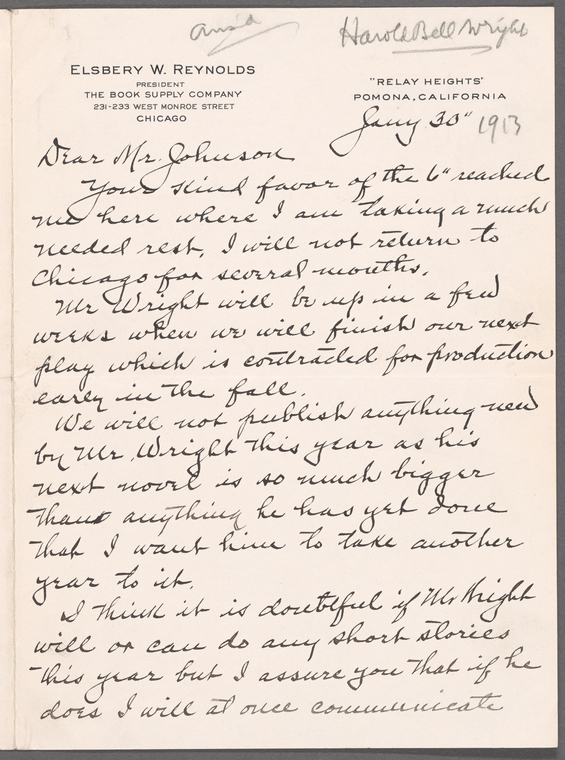 ans'd
Harold Bell Wright
ELSBERY W. REYNOLDS
PRESIDENT
THE BOOK SUPPLY COMPANY
231-233 WEST MONROE STREET
CHICAGO
"RELAY HEIGHTS"
POMONA, CALIFORNIA
Jany 30" 1913
Dear Mr. Johnson
Your kind favor of the 6" reached
me here where I am taking a much
needed rest. I will not return to
Chicago for several months.
Mr Wright will be up in a few
weeks when we will finish our next
play which is contracted for production
early in the fall.
We will not publish anything new
by Mr. Wright this year as his
next novel is so much bigger
than anything he has yet done
that I want him to take another
year to it.
I think it is doubtful if Mr Wright
will or can do any short stories
this year but I assure you that if he
does I will at once communicate